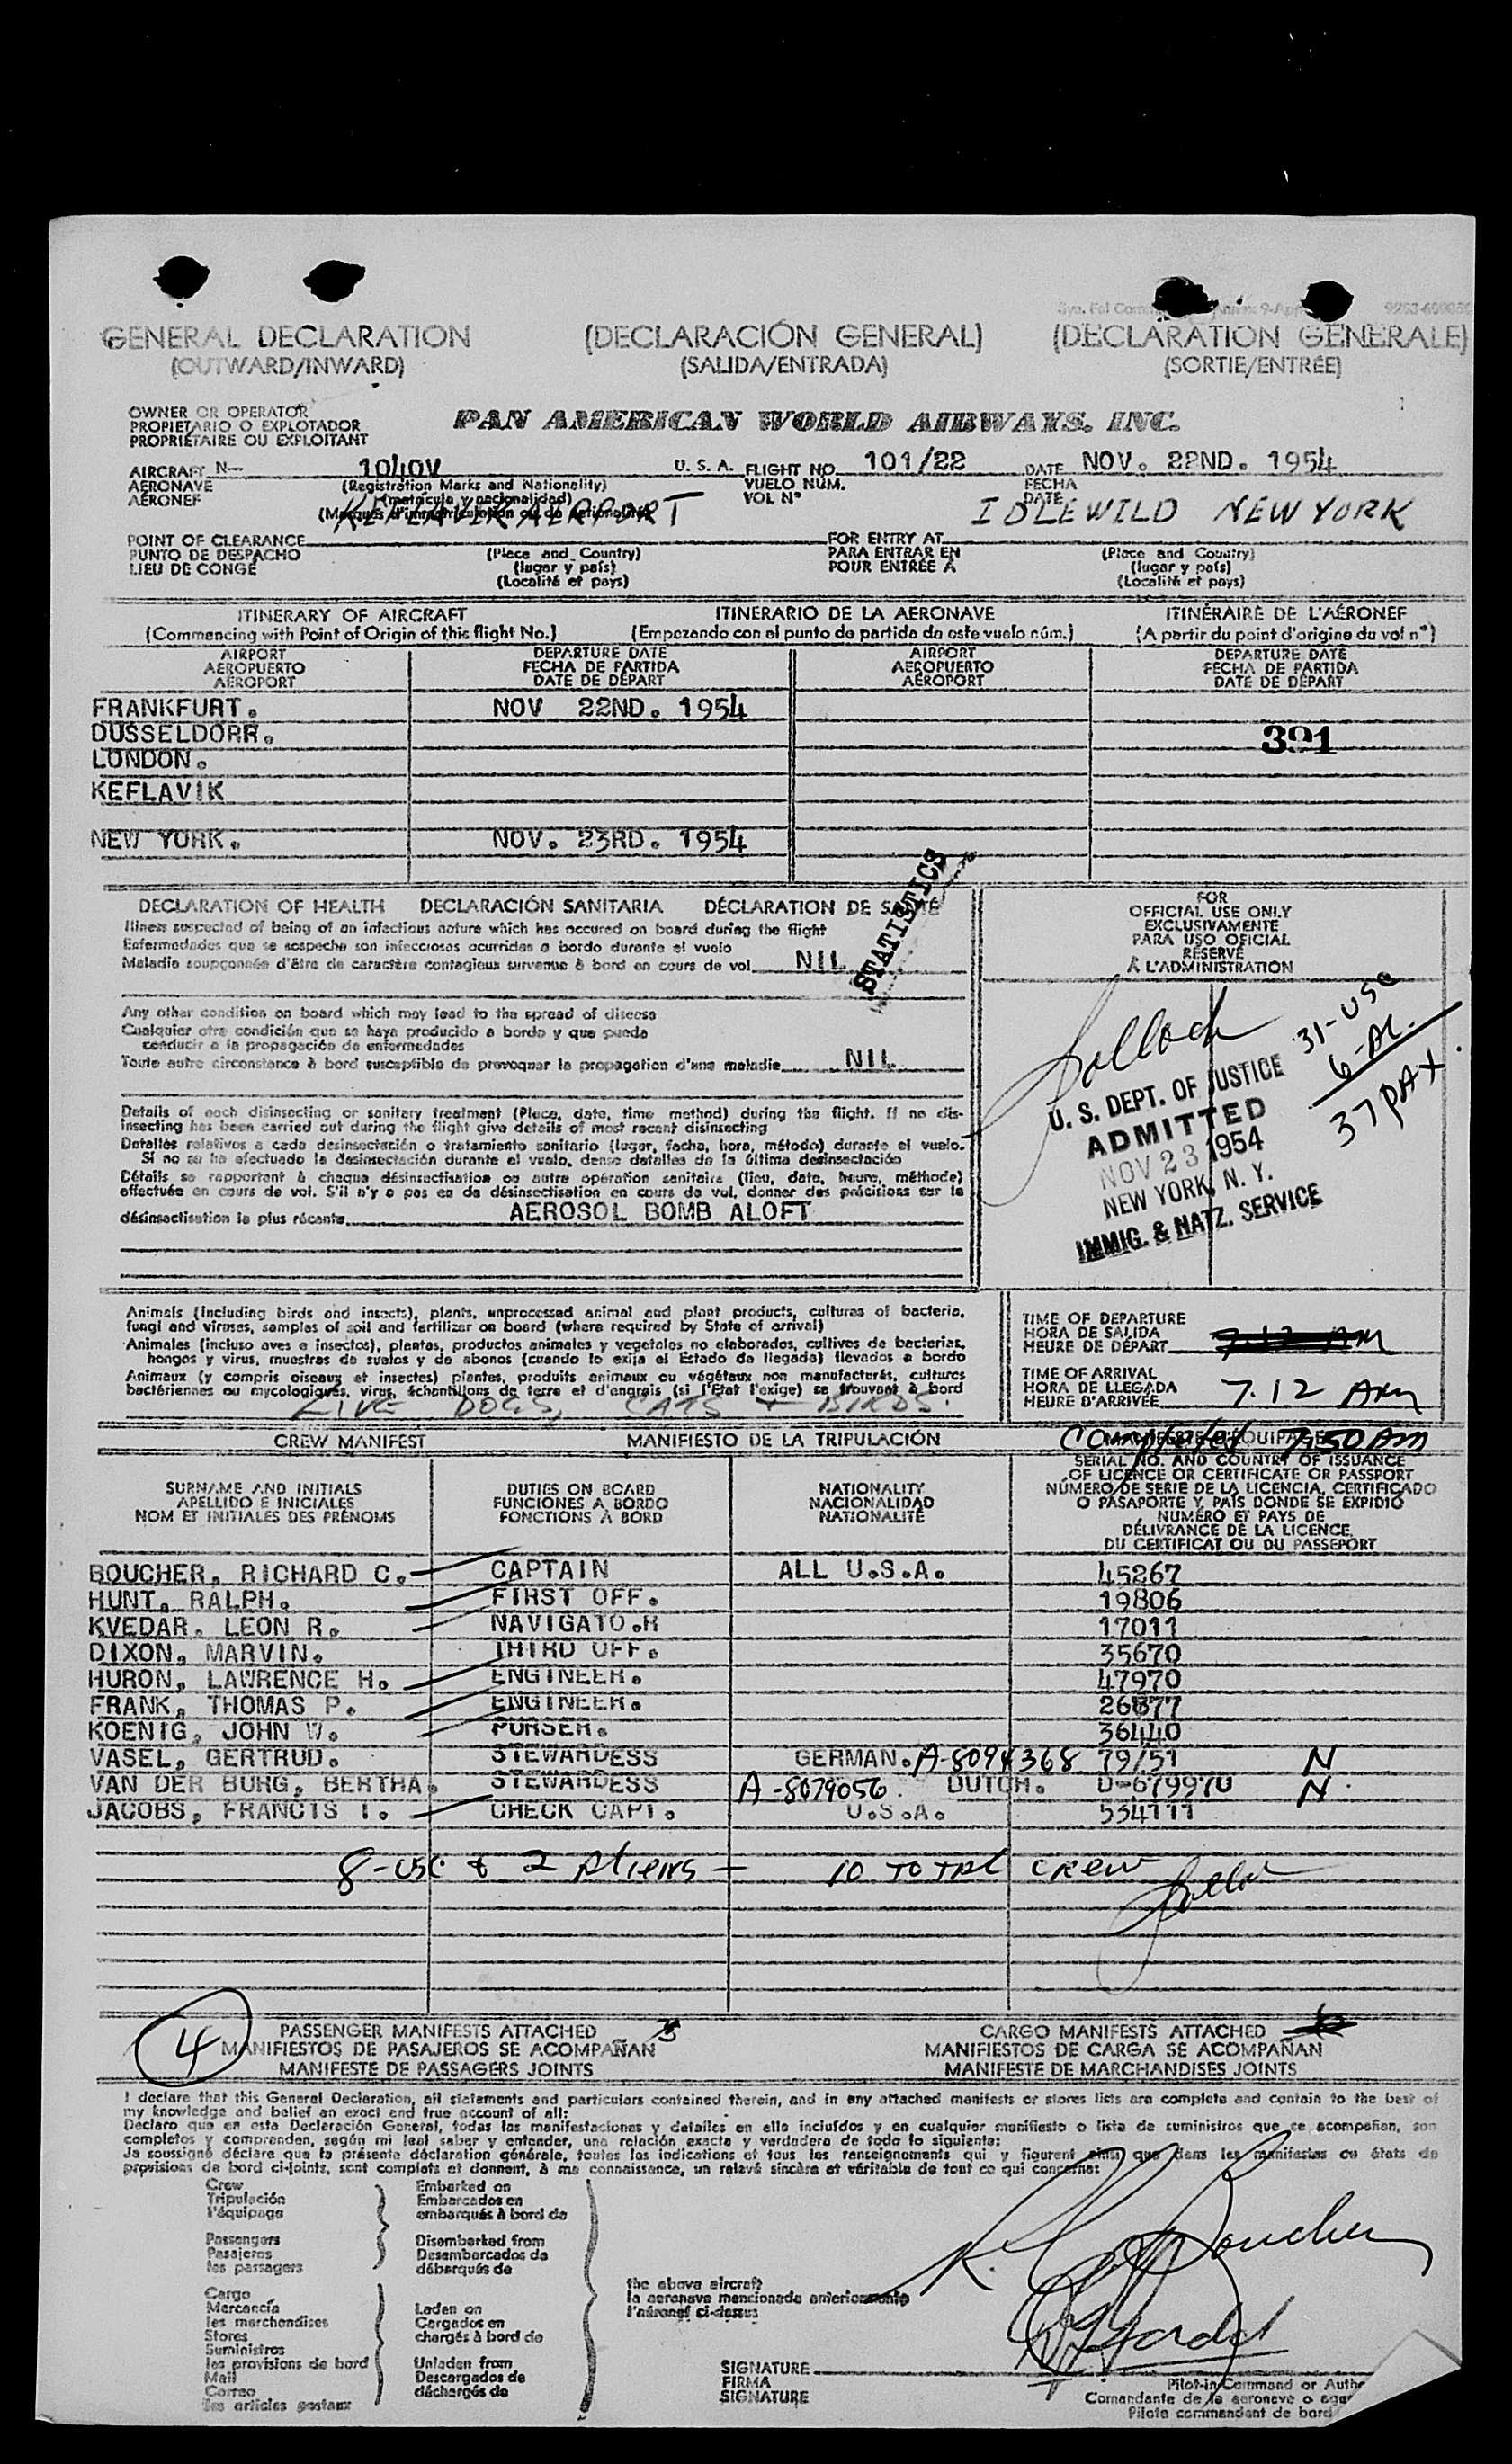 GENERAL DECLARATION (DECLARACIÓN GENERAL) (DECLARATION GENERALE)
(OUTWARD/INWARD) (SALIDA/ENTRADA) (SORTIE/ENTRÉE)
OWNER OR OPERATOR
PROPIETARIO O EXPLOTADOR
PROPRIÉTAIRE OU EXPLOITANT
PAN AMERICAN WORLD AIRWAYS, INC.
AIRCRAFT N— 1040V U. S. A. FLIGHT NO. 101/22 DATE NOV. 22ND. 1954
AERONAVE (Registration Marks and Nationality) VUELO NUM. FECHA
AÉRONEF (matrícula y nacionalidad) VOL Nº DATE
KEFLAVIK AIRPORT IDLEWILD NEW YORK
POINT OF CLEARANCE FOR ENTRY AT
PUNTO DE DESPACHO (Place and Country) PARA ENTRAR EN (Place and Country)
LIEU DE CONGÉ (lugar y país) POUR ENTRÉE À (lugar y país)
(Localité et pays) (Localité et pays)
ITINERARY OF AIRCRAFT ITINERARIO DE LA AERONAVE ITINÉRAIRE DE L'AÉRONEF
(Commencing with Point of Origin of this flight No.) (Empezando con el punto de partida de este vuelo núm.) (A partir du point d'origine du vol nº)
AIRPORT DEPARTURE DATE AIRPORT DEPARTURE DATE
AEROPUERTO FECHA DE PARTIDA AEROPUERTO FECHA DE PARTIDA
AÉROPORT DATE DE DÉPART AÉROPORT DATE DE DÉPART
FRANKFURT. NOV 22ND. 1954
DUSSELDORR. 391
LONDON.
KEFLAVIK
NEW YORK. NOV. 23RD. 1954
STATISTICS
DECLARATION OF HEALTH DECLARACIÓN SANITARIA DÉCLARATION DE SANTÉ
Illness suspected of being of an infectious nature which has occured on board during the flight
Enfermedades que se sospecha son infecciosas ocurridas a bordo durante el vuelo
Maladie soupçonnée d'être de caractère contagieux survenue à bord en cours de vol NIL
Any other condition on board which may lead to the spread of disease
Cualquier otra condición que se haya producido a bordo y que pueda
conducir a la propagación de enfermedades
Toute autre circonstance à bord susceptible de provoquer la propagation d'une maladie NIL
Details of each disinsecting or sanitary treatment (Place, date, time method) during the flight. If no dis-
insecting has been carried out during the flight give details of most recent disinsecting
Detalles relativos a cada desinsectación o tratamiento sanitario (lugar, fecha, hora, método) durante el vuelo.
Si no se ha efectuado la desinsectación durante el vuelo, dense detalles de la última desinsectación
Détails se rapportant à chaque désinsectisation ou autre opération sanitaire (lieu, date, heure, méthode)
effectuée en cours de vol. S'il n'y a pas eu de désinsectisation en cours de vol, donner des précisions sur la
désinsectisation la plus récente AEROSOL BOMB ALOFT
FOR
OFFICIAL USE ONLY
EXCLUSIVAMENTE
PARA USO OFICIAL
RÉSERVÉ
À L'ADMINISTRATION
31-USC
6-AL.
37 PAX
U. S. DEPT. OF JUSTICE
ADMITTED
NOV 23 1954
NEW YORK, N. Y.
IMMIG. & NATZ. SERVICE
Animals (including birds and insects), plants, unprocessed animal and plant products, cultures of bacteria,
fungi and viruses, samples of soil and fertilizer on board (where required by State of arrival)
Animales (incluso aves e insectos), plantas, productos animales y vegetales no elaborados, cultivos de bacterias,
hongos y virus, muestras de suelos y de abonos (cuando lo exija el Estado de llegada) llevados a bordo
Animaux (y compris oiseaux et insectes) plantes, produits animaux ou végétaux non manufacturés, cultures
bactériennes ou mycologiques, virus, échantillons de terre et d'engrais (si l'Etat l'exige) se trouvant à bord
LIVE DOGS, CATS + BIRDS.
TIME OF DEPARTURE
HORA DE SALIDA
HEURE DE DÉPART 7.12 AM
TIME OF ARRIVAL
HORA DE LLEGADA
HEURE D'ARRIVÉE 7.12 AM
CREW MANIFEST MANIFIESTO DE LA TRIPULACIÓN Completed 7:50 AM
SERIAL NO. AND COUNTRY OF ISSUANCE
OF LICENCE OR CERTIFICATE OR PASSPORT
SURNAME AND INITIALS DUTIES ON BOARD NATIONALITY NÚMERO DE SERIE DE LA LICENCIA, CERTIFICADO
APELLIDO E INICIALES FUNCIONES A BORDO NACIONALIDAD O PASAPORTE Y PAÍS DONDE SE EXPIDIÓ
NOM ET INITIALES DES PRÉNOMS FONCTIONS À BORD NATIONALITÉ NUMÉRO ET PAYS DE
DÉLIVRANCE DE LA LICENCE,
DU CERTIFICAT OU DU PASSEPORT
BOUCHER, RICHARD C. CAPTAIN ALL U.S.A. 45267
HUNT, RALPH. FIRST OFF. 19806
KVEDAR, LEON R. NAVIGATO.R 17011
DIXON, MARVIN. THIRD OFF. 35670
HURON, LAWRENCE H. ENGINEER. 47970
FRANK, THOMAS P. ENGINEER. 26877
KOENIG, JOHN W. PURSER. 36440
VASEL, GERTRUD. STEWARDESS GERMAN. A-8094368 79/51 N
VAN DER BURG, BERTHA. STEWARDESS A-8079056 DUTCH. D-679970 N.
JACOBS, FRANCIS I. CHECK CAPT. U.S.A. 534111
8-USC & 2 Aliens — 10 TOTAL CREW
4 PASSENGER MANIFESTS ATTACHED CARGO MANIFESTS ATTACHED
MANIFIESTOS DE PASAJEROS SE ACOMPAÑAN MANIFIESTOS DE CARGA SE ACOMPAÑAN
MANIFESTE DE PASSAGERS JOINTS MANIFESTE DE MARCHANDISES JOINTS
I declare that this General Declaration, all statements and particulars contained therein, and in any attached manifests or stores lists are complete and contain to the best of
my knowledge and belief an exact and true account of all:
Declaro que en esta Declaración General, todas las manifestaciones y detalles en ella incluídos y en cualquier manifiesto o lista de suministros que se acompañan, son
completos y comprenden, según mi leal saber y entender, una relación exacta y verdadera de todo lo siguiente:
Je soussigné déclare que la présente déclaration générale, toutes les indications et tous les renseignements qui y figurent ainsi que dans les manifestes ou états de
provisions de bord ci-joints, sont complets et donnent, à ma connaissance, un relevé sincère et véritable de tout ce qui concerne:
Crew Embarked on
Tripulación Embarcados en
l'équipage embarqués à bord de
Passengers Disembarked from
Pasajeros Desembarcados de
les passagers débarqués de
the above aircraft
la aeronave mencionada anteriormente
l'aéronef ci-dessus
Cargo
Mercancía Laden on
les marchandises Cargados en
Stores chargés à bord de
Suministros
les provisions de bord Unladen from
Mail Descargados de
Correo déchargés de
les articles postaux
R. C. Boucher
SIGNATURE
FIRMA
SIGNATURE
Pilot-in-Command or
Comandante de la aeronave o
Pilote commandant de bord